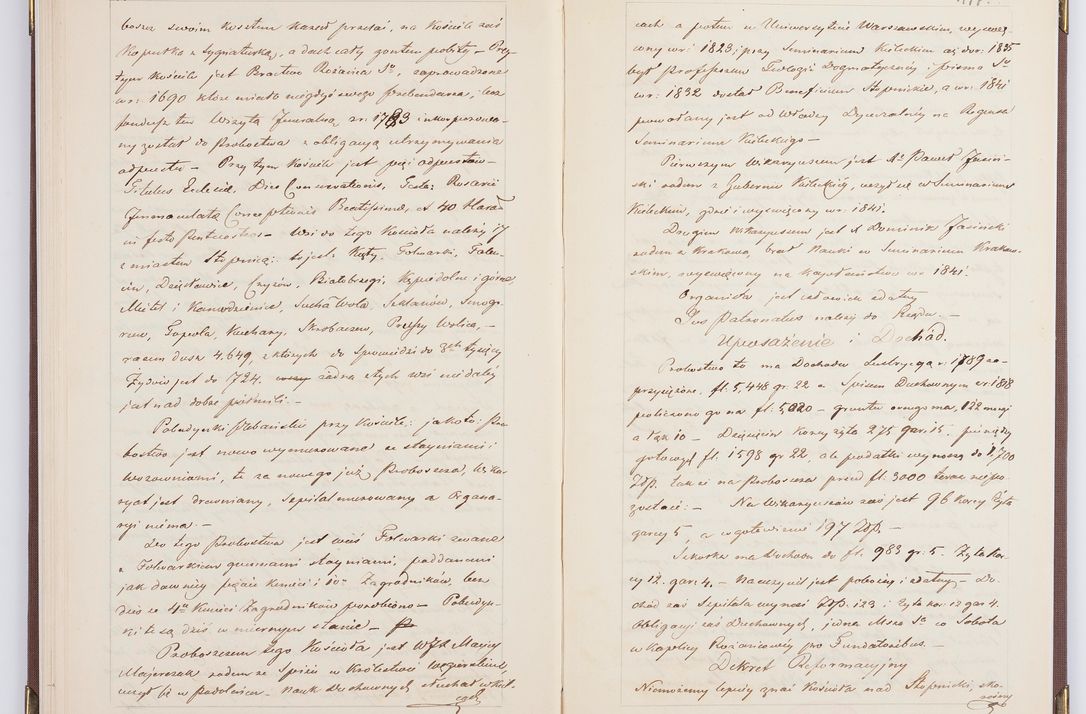 boszcz swoim kosztem kazał przelać, na Kościele zaś
Kopułka z Sygnaturką, a dach cały gontem pobity – Przy
tym Kościele jest Bractwo Rożańca Sgo, zaprowadzone
w r: 1690 które miało niegdyś swego prebendarza, lecz
fundusz ten Wizyta Jeneralna, z r: 1783 inkorporowa-
ny został do Probostwa z obligacyą utrzymywania
odpustu – Przy tym Kościele jest pięć odpustów –
Titulus Ecclesiæ, Dies Consecrationis, Festa: Rosarii
Immaculatæ Conceptionis Beatissimæ, et 40 Hora-
ni festo Pentecostes – Wsi do tego Kościoła należy 17
z miastem Stopnicą: to jest: Kąty, Folwarki, Falęn-
cin, Dziesławice, Czyżów, Białoborzegi, Kępie dolne i górne
Mietel i Konrodzienice, Sucha Wola, Szklanów, Smogo-
rzew, Topola, Kuchary, Skrobaczew, Prusy Wolica, –
razem dusz 4.649, z których do Spowiedzi do 3ch tysięcy
Żydów jest do 724. żadna z tych wsi niedalej
jak nad dobre pół mili. –
Pobudynki Plebańskie przy Kościele: jako to: Pro-
bostwo jest nowo wymurowane ze stayniami i
wozowniami, te za nowego już Proboszcza, Wikar-
ryat jest drewniany, Szpital murowany a Organa-
ryi niéma. –
Do tego Probostwa jest wieś Folwarki zwane
z Folwarkiem gumnami stayniami, poddanemi
jak dawniéj pięciu Kmieci i 10u Zagrodników, lecz
dziś ze 4ch Kmieci Zagrodników porobiono – Pobudyn-
ki te są dziś w miernym stanie –
Proboszczem tego Kościoła jest WJX Maciéj
Majerczak rodem ze Spiżu w Królestwie Węgierskiem
uczył się w Podolińcu – nauk Duchownych słuchał w Kiel-
cach
cach a potem w Uniwersytecie Warszawskim, wyświę-
cony w r: 1823, przy Seminarium Kieleckim aż do r: 1835
był Professorem Teologii Dogmatycznéj i pisma Sgo
w r: 1832 dostał Beneficium Stopnickie, a w r: 1841
powołany jest od Władzy Dyecezalnéj na Regensa
Seminarium Kieleckiego –
Pierwszym Wikaryuszem jest X. Paweł Jasiń-
ski rodem z Gubernii Kieleckiéj, uczył się w Seminarium
Kieleckim, gdzie i wyświęcony w r: 1841.
Drugim Wikaryuszem jest X Dominik Jasiński
rodem z Krakowa, brał Nauki w Seminarium Krakow-
skim, wyświęcony na Kapłaństwo w r: 1841.
Organista jest człowiek zdatny
Jus Patronatus należy do Rządu. –
Uposażenie i Dochód.
Probostwo to ma Dochodu Lustracyą r: 1789 za-
przysiężone, fl. 5,448 gr. 22 a Spisem Duchownym w r: 1818
policzono go na fl: 5,020 – gruntu ornego ma, 122 morgi
a łąk 10 – Dziesięcin korcy żyta 275 gar. 15. pieniędzy
gotowych fl. 1598 gr 22, ale podatki wynoszą do 1,700
Złp. tak iż na Proboszcza przed fl. 3000 teraz niepo-
zostaie: – Na Wikaryuszów zaś jest 96 korcy Żyta
garcy 5, a w gotowiznie 197 Złp. –
Szkółka ma Dochodu do fl. 983 gr. 5. Żyta kor-
cy 12. gar: 4, – Nauczyciel jest pobożny i zdatny – Do-
chód zaś Szpitala wynosi Złp. 123 i Żyta kor: 12 gar 4.
Obligacyi zaś Duchownych, jedna Msza Sta co Sobota
w Kaplicy Rożańcowéj pro Fundatoribus. –
Dekret Reformacyjny
Niemożemy lepiéj znać Kościoła nad Stopnicki, sko-